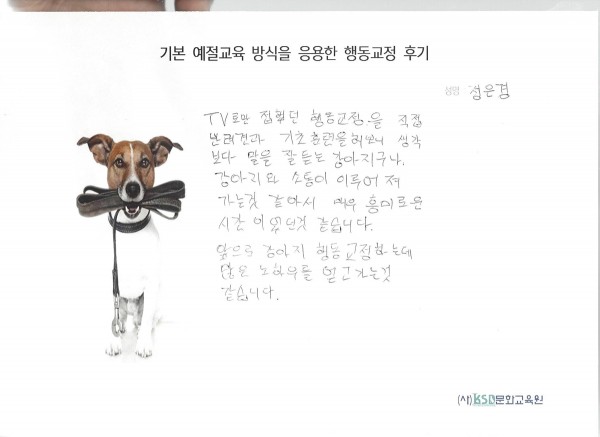 기본 예절교육 방식을 응용한 행동교정 후기
성명 정은경
TV로만 접하던 행동교정을 직접
반려견과 기초훈련을 해보니 생각
보다 말을 잘 듣는 강아지구나.
강아지와 소통이 이루어 져
가는것 같아서 매우 흥미로운
시간 이었던것 같습니다.
앞으로 강아지 행동교정하는데
많은 노하우를 얻고가는것
같습니다.
(사)KSD문화교육원